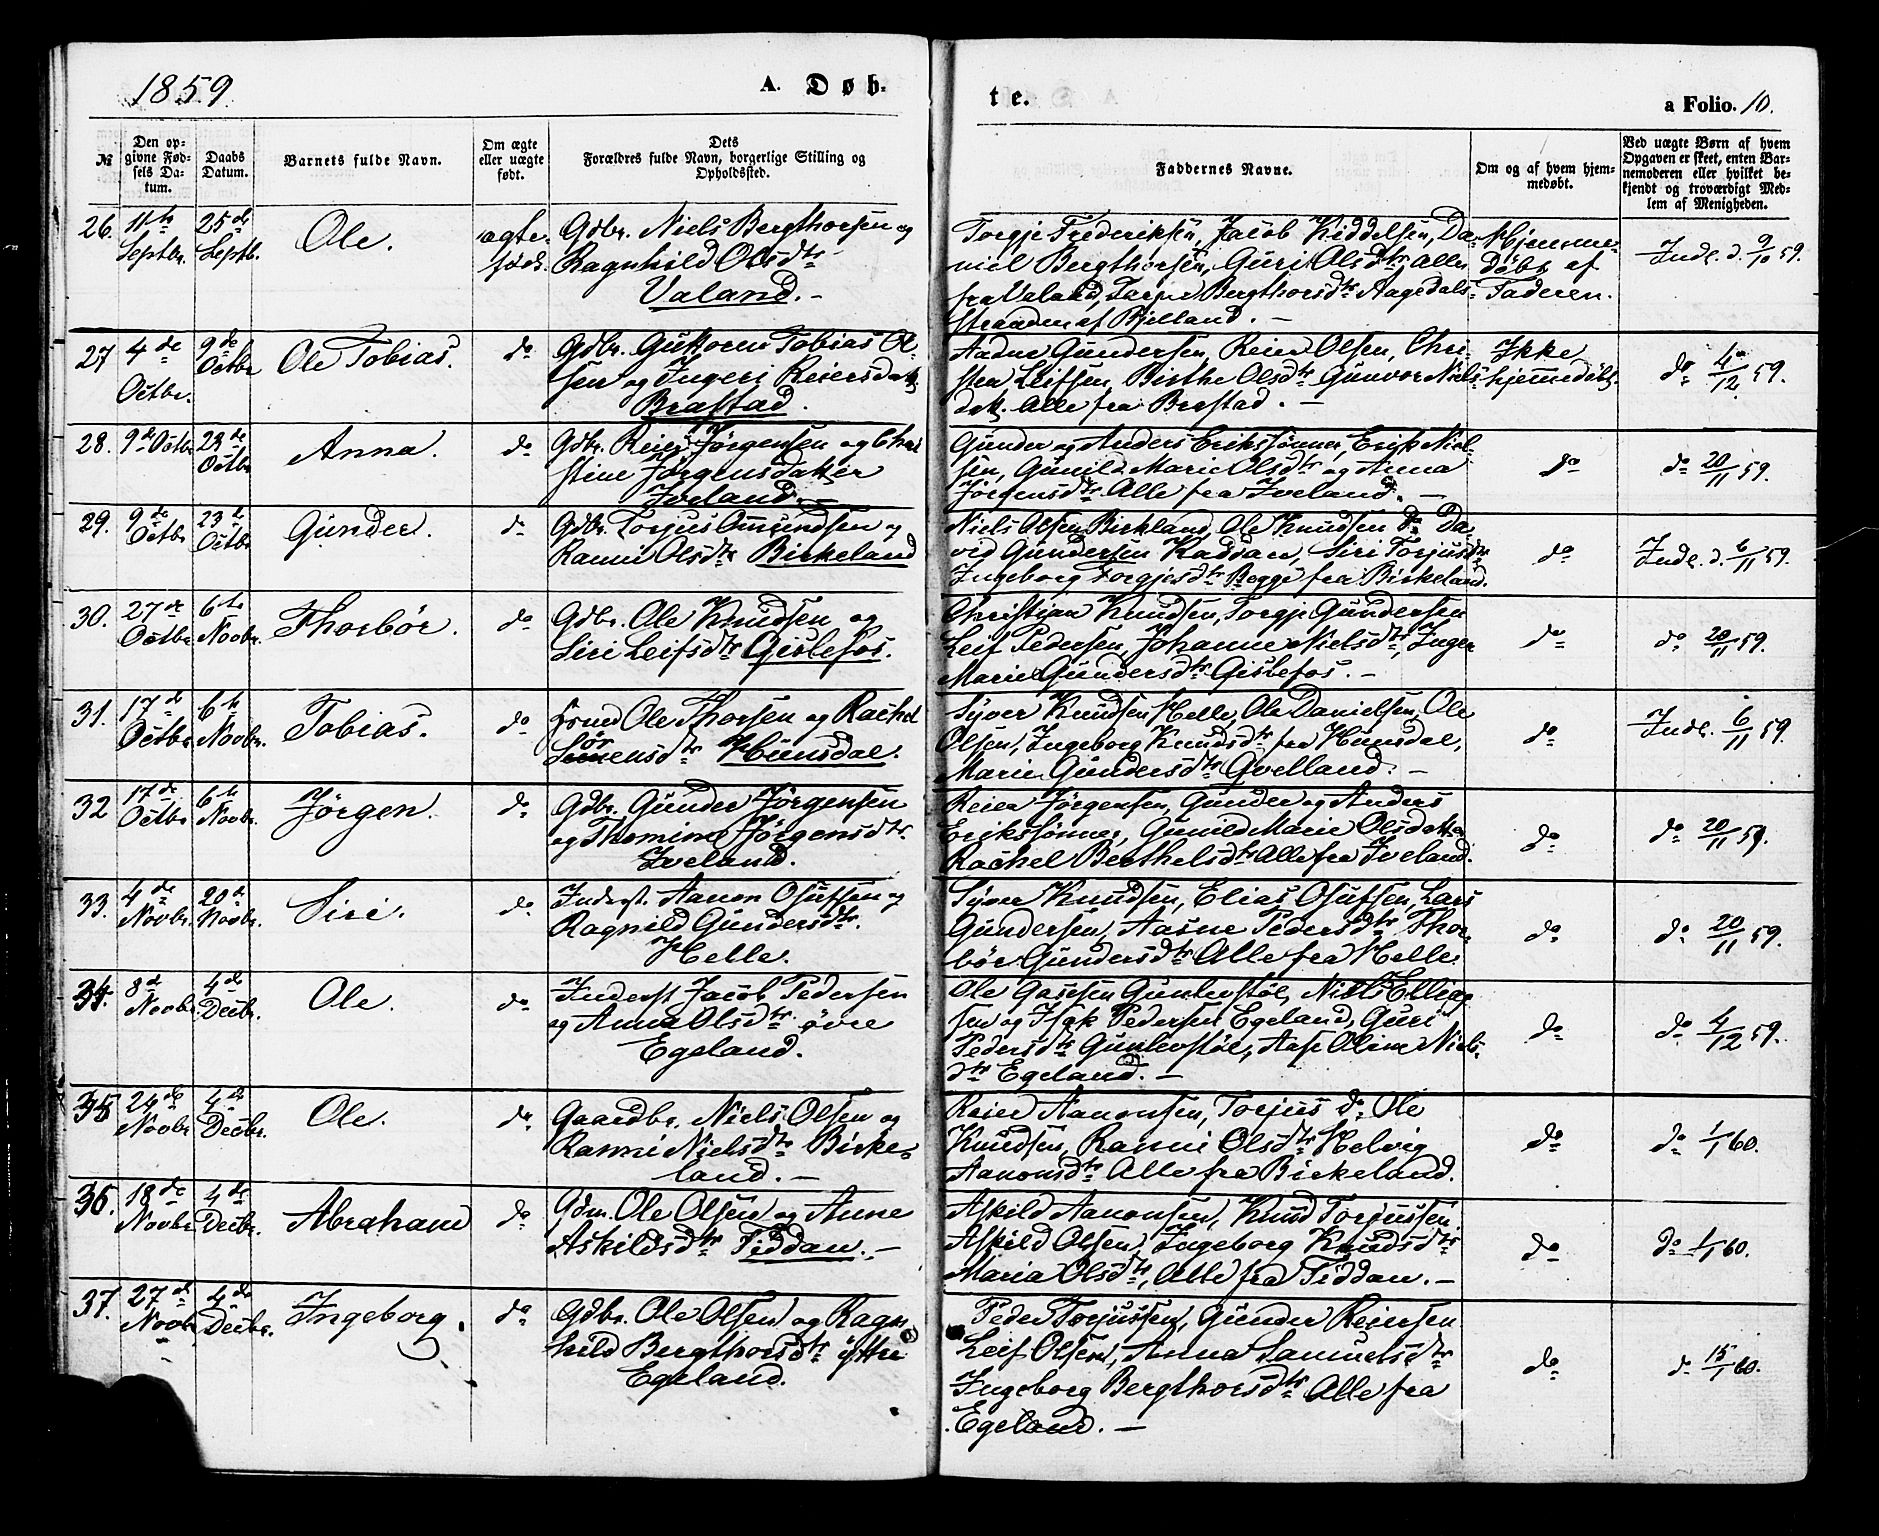 1859.
A. Døb-
te.
a Folio. 10.
№
Den op-
givne Fød-
sels Da-
tum.
Daabs
Datum.
Barnets fulde Navn.
Om ægte
eller uægte
født.
Dets
Forældres fulde Navn, borgerlige Stilling og
Opholdssted.
Faddernes Navne.
Om og af hvem hjem-
medøbt.
Ved uægte Børn af hvem
Opgaven er skeet, enten Bar-
nemoderen eller hvilket be-
kjendt og troværdigt Med-
lem af Menigheden.
26.
11te
Septbr.
25de
Septb.
Ole.
ægte-
föds.
Gdbr. Niels Bergthorsen og
Ragnhild Olsdtr
Valand. -
Torgje Frederiksen, Jacob Kiddelsen, Da-
niel Bergthorsen, Guri Olsdtr alle
fra Valand, Bergthorsdtr Aagedals-
stranden af Bjelland. -
Hjemme-
döbt af
Faderen.
Indl. d. 9/10 59.
27
4de
Octbr.
9de
Octbr
Ole Tobias.
do
Gdbr. Guttorm Tobias Ol-
sen og Ingeri Reiersdatt.
Brastad.
Aadne Gundersen, Reier Olsen, Chri-
sten Leifsen, Birthe Olsdtr Gunvor Niels-
datt. Alle fra Brastad. -
Ikke
hjemmedöbt.
do 4/12 59.
28.
9de Octbr
23de
Octbr
Anna.
do
Gdbr. Reier Jörgensen og Chri
stine Jörgensdatter
Iveland. -
Gunder og Anders Erikssönner, Erik Niel-
sen, Gunild Marie Olsdtr og Anna
Jörgensdtr Alle fra Iveland. -
do
do 20/11 59.
29.
9de
Octbr
23de
Octbr
Gunder.
do
Gdbr. Torjus Omundsen og
Ranni Olsdtr Birkeland
Niels Olsen Birkland, Ole Knudsen do Da-
vid Gundersen Kaddan, Siri Torjusdtr
Ingeborg Torgjesdtr Begge fra Birkeland.
do
Indl. d. 6/11 59.
30.
27de
Octbr
6te
Novbr.
Thorbör.
do
Gdbr. Ole Knudsen og
Siri Leifsdtr Gislefos.
Christian Knudsen, Torgje Gundersen
Leif Pedersen, Johanne Nielsdtr, Inger
Marie Gundersdtr Gislefos. -
do
do 20/11 59.
31.
17de
Octbr
6te
Novbr.
Tobias.
do
Ole Thorsen og Rachel
Sörensdtr Hunsdal.
Syver Knudsen Helle, Ole Danielsen, Ole
Olsen, Ingeborg Knudsdtr fra Hunsdal,
Marie Gundersdtr Qvelland. -
do
Indl. 6/11 59.
32
17de
Octbr
6te
Novbr.
Jörgen.
do
Gdbr. Gunder Jörgensen
og Thomine Jörgensdtr.
Iveland.
Reier Jörgensen, Gunder og Anders
Erikssönner, Gunild Marie Olsdatt og
Rachel Berthelsdtr Alle fra Iveland.
do
do 20/11 59.
33.
4de
Novbr.
20de
Novbr.
Siri.
do
Inderst. Aanon Osufsen og
Ragnild Gundersdtr.
Helle.
Syver Knudsen, Elias Osufsen, Lars
Gundersen, Aasne Pedersdtr Thor-
bör Gundersdtr Alle fra Helle.
do
do 20/11 59.
34.
8de
Novbr.
4de
Decbr.
Ole.
do
Inderst Jacob Pedersen
og Anna Olsdtr. övre
Egeland.
Ole Gunlevstöl, Niels Ellings
sen og Isak Pedersen Egeland, Guri
Pedersdtr Gunlevstöl, Aase Oline Niels-
dtr Egeland. -
do
do 4/12 59.
35
24de
Novbr.
4de
Decbr.
Ole.
do
Gaardbr. Niels Olsen og
Ranni Nielsdtr Birke-
land. -
Reier Aanonsen, Torjus do Ole
Knudsen, Ranni Olsdtr Helvig
Aanonsdtr Alle fra Birkeland.
do
do 1/1 60.
36.
18de
Novbr
4de
Decbr.
Abraham
do
Gdm. Ole Olsen og Anne
Askildsdtr Fiddan. -
Askild Aanonsen, Knud Torjussen.
Askild Olsen, Ingeborg Knudsdtr
Maria Olsdtr, Alle fra Fiddan. -
do
do 1/1 60.
37.
27de
Novbr
4de
Decbr.
Ingeborg.
do
Gdbr. Ole Olsen og Ragn
hild Bergthorsdtr yttre
Egeland.
Peder Torjussen, Gunder Reiersen
Leif Olsen, Anna Samuelsdtr
Ingeborg Bergthorsdtr Alle fra
Egeland. -
do
do 15/1 60.